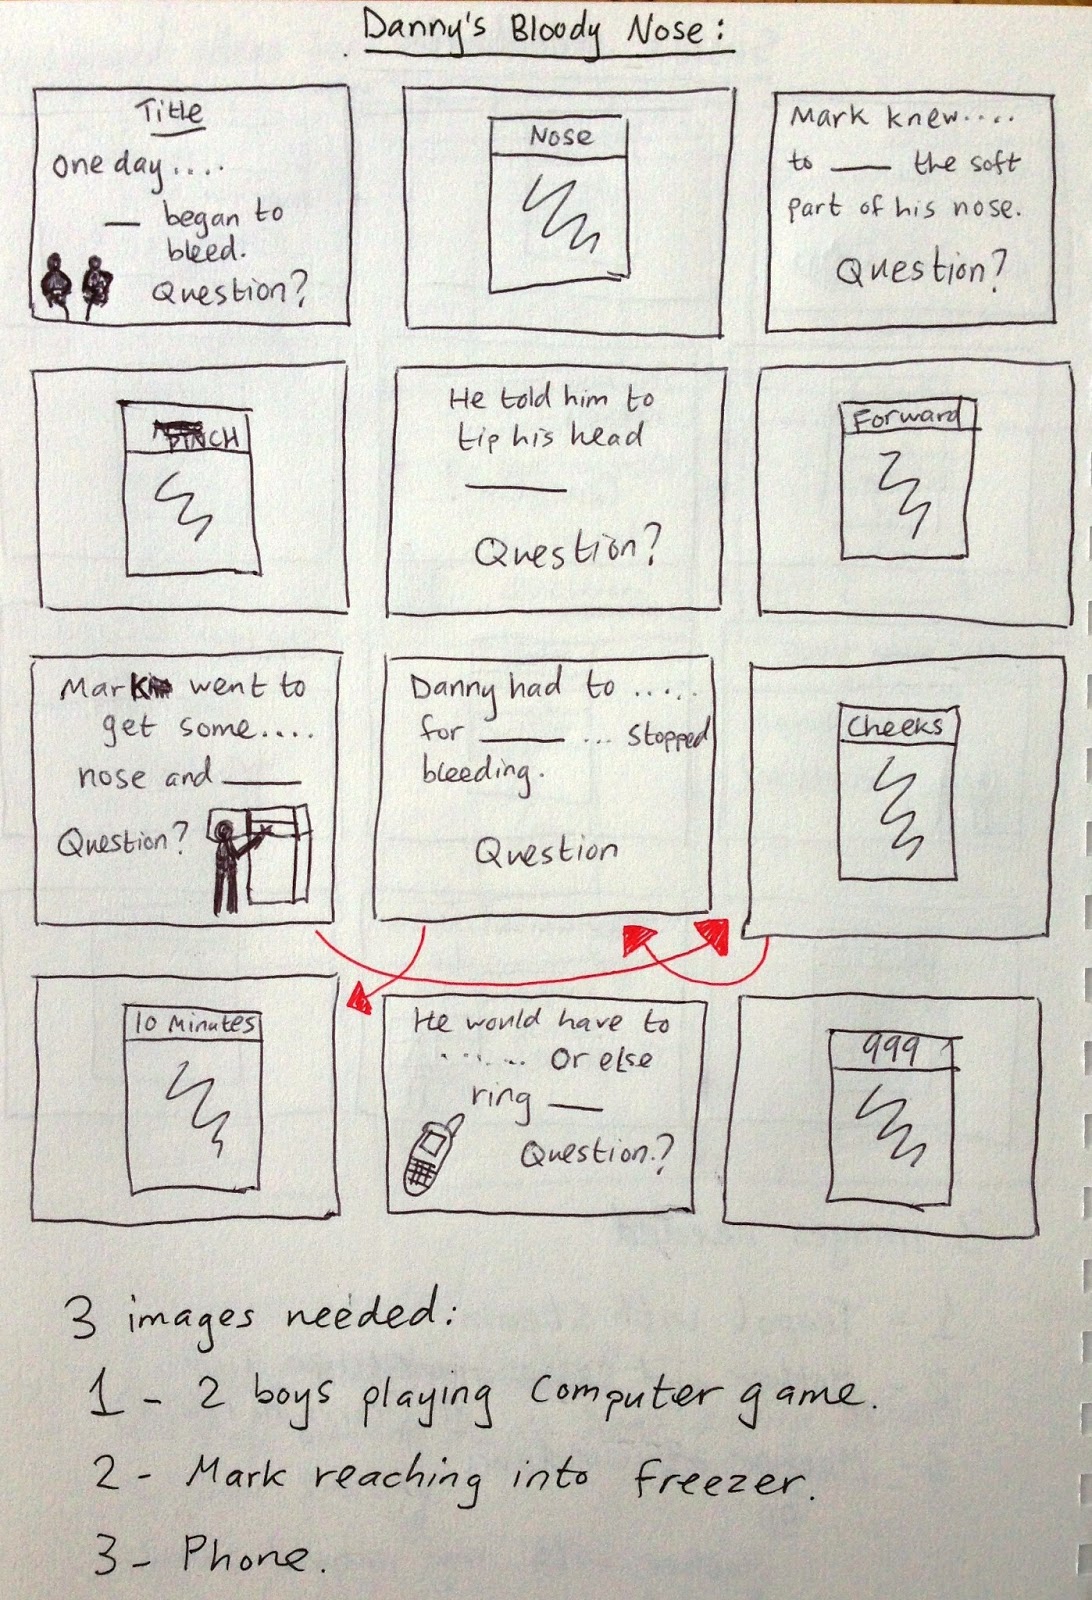 Danny's Bloody Nose:
Title
One day....
__ began to
bleed.
Question?
Nose
Mark knew....
to ___ the soft
part of his nose.
Question?
PINCH
He told him to
tip his head
_____
Question?
Forward
Mark went to
get some....
nose and ____
Question?
Danny had to .....
for ____ ... stopped
bleeding.
Question
Cheeks
10 Minutes
He would have to
...... Or else
ring ___
Question?
999
3 images needed:
1 - 2 boys playing Computer game.
2 - Mark reaching into freezer.
3 - Phone.